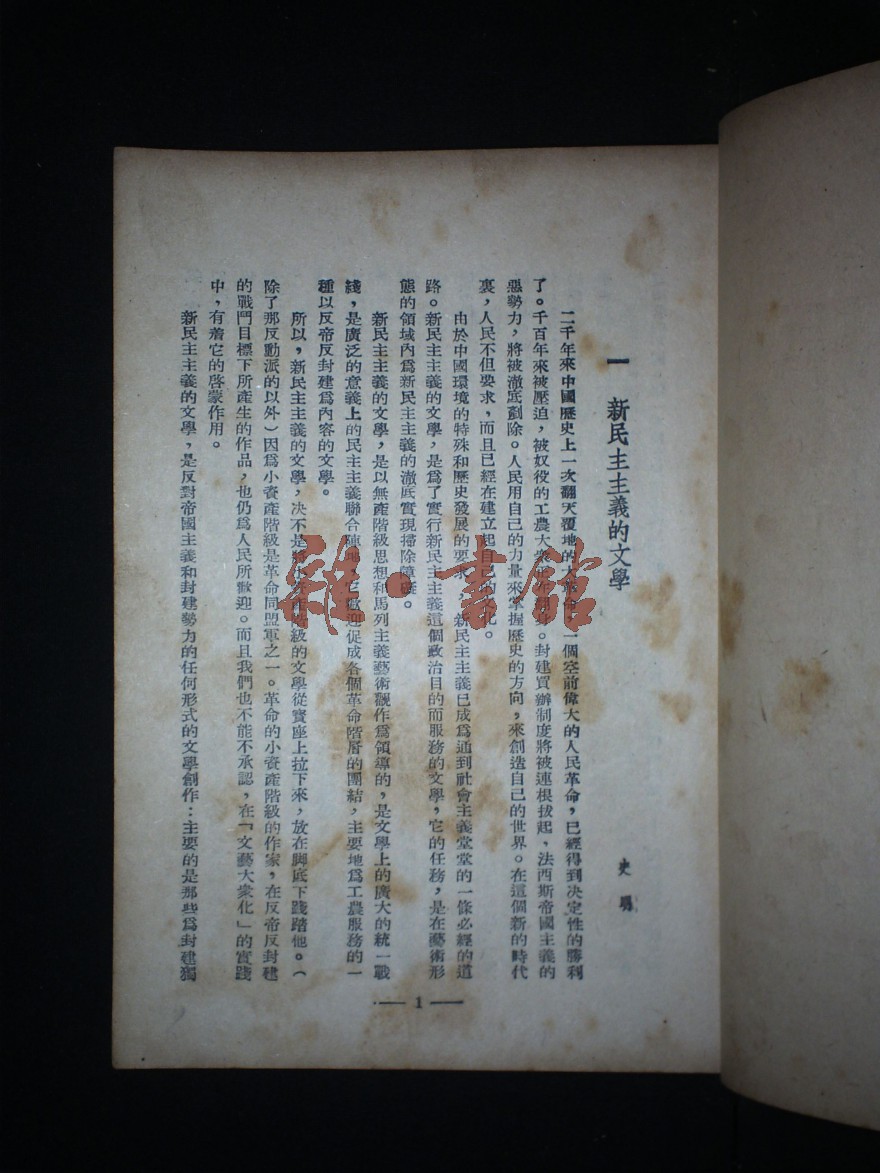 一 新民主主義的文學
史
二千年來中國歷史上一次翻天覆地的大革命，一個空前偉大的人民革命，已經得到决定性的勝利
了。千百年來被壓迫，被奴役的工農大衆。封建買辦制度將被連根拔起、法西斯帝國主義的
惡勢力，將被澈底剷除。人民用自己的力量來掌握歷史的方向，來創造自己的世界。在這個新的時代
裏，人民不但要求，而且已經在建立起自己的文化。
由於中國環境的特殊和歷史發展的要求，新民主主義已成爲通到社會主義堂堂的一條必經的道
路。新民主主義的文學，是爲了實行新民主主義這個政治目的而服務的文學，它的任務，是在藝術形
態的領域內爲新民主主義的澈底實現掃除障礙。
新民主主義的文學，是以無產階級思想和馬列主義藝術觀作爲領導的，是文學上的廣大的統一戰
綫，是廣泛的意義上的民主主義聯合陣地，它歡迎促成各個革命階層的團結，主要地爲工農服務的一
種以反帝反封建爲內容的文學。
所以，新民主主義的文學，决不是將小資產階級的文學從寶座上拉下來，放在脚底下踐踏他。（
除了那反動派的以外）因爲小資產階級是革命同盟軍之一。革命的小資產階級的作家，在反帝反封建
的戰鬥目標下所產生的作品，也仍爲人民所歡迎。而且我們也不能不承認，在「文藝大衆化」的實踐
中，有着它的啓蒙作用。
新民主主義的文學，是反對帝國主義和封建勢力的任何形式的文學創作：主要的是那些爲封建獨
— 1 —
雜·書館